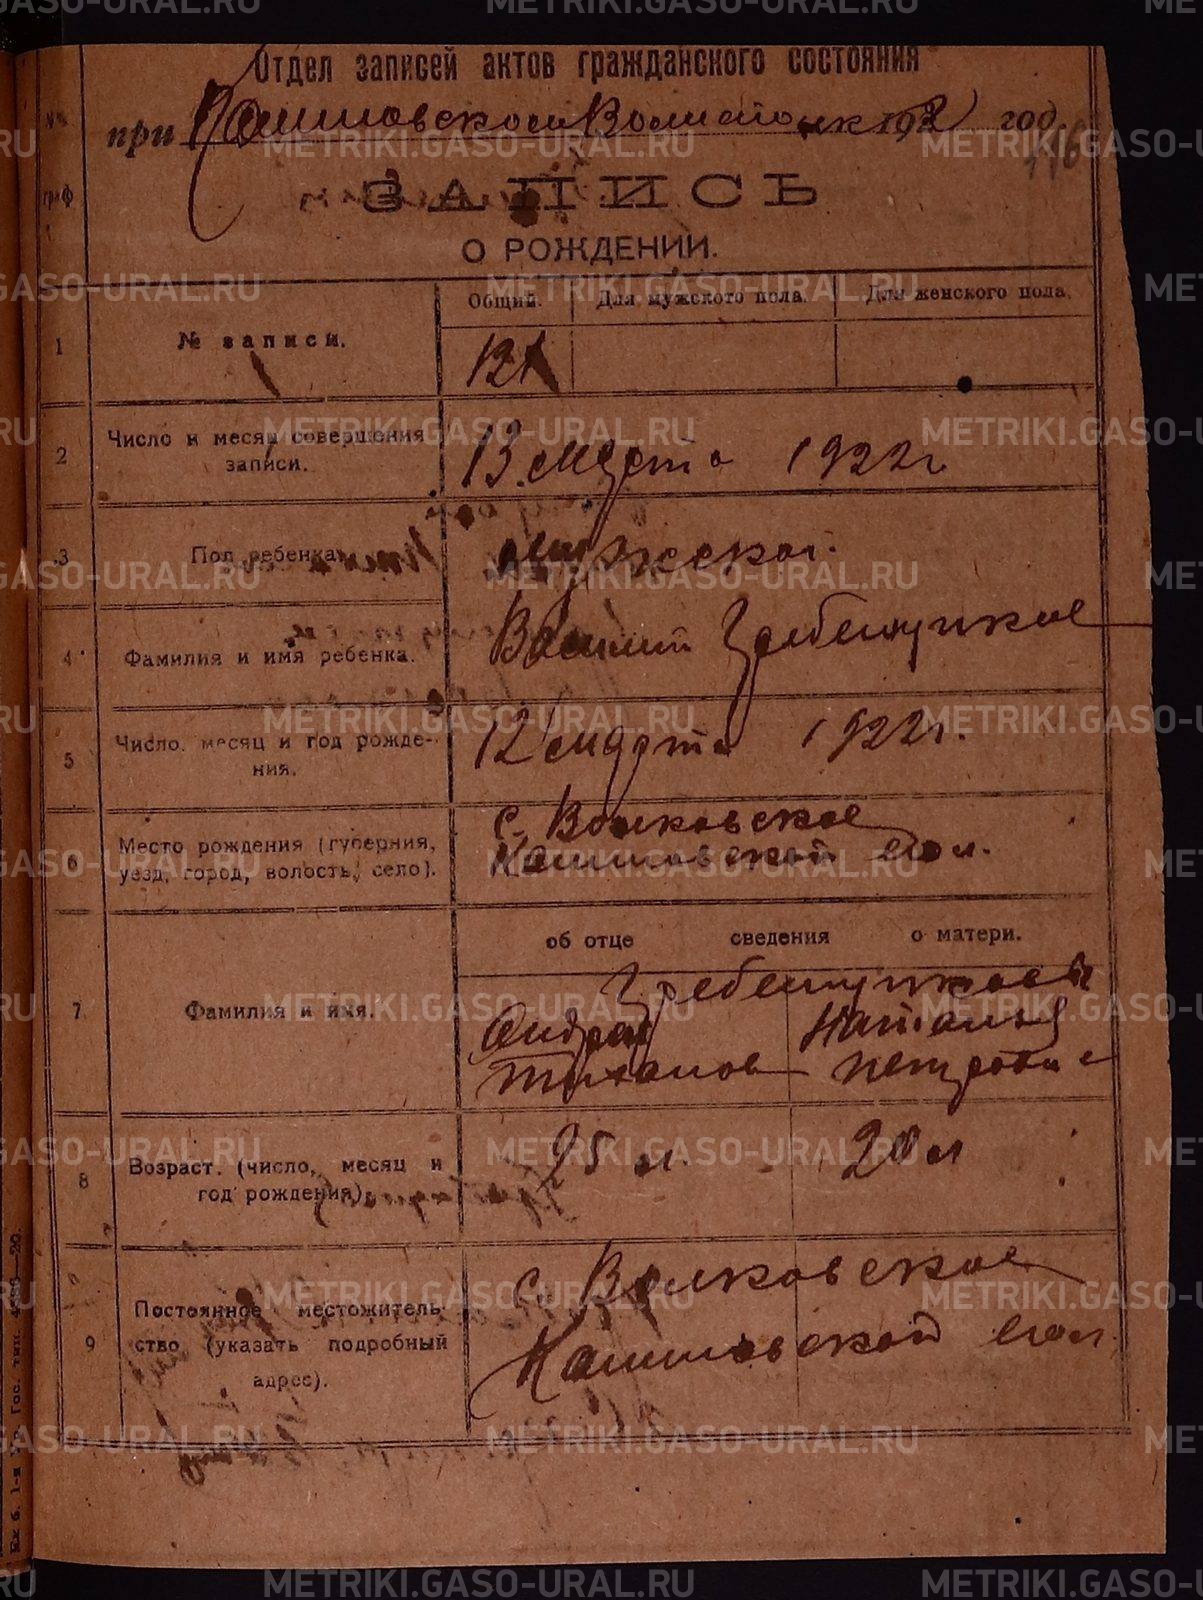 Отдел записей актов гражданского состояния
при Камышовском Волисполк 1922 год
116
ЗАПИСЬ
О РОЖДЕНИИ.
№№ граф
Общий. Для мужского пола. Для женского пола.
1 № записи. 121
2 Число и месяц совершения
записи. 13 Марта 1922 г.
3 Пол ребенка. мужской.
4 Фамилия и имя ребенка. Василий Гребенщиков
5 Число, месяц и год рожде-
ния. 12 марта 1922 г.
6 Место рождения (губерния,
уезд, город, волость, село). с. Волковское
вол.
об отце сведения о матери.
7 Фамилия и имя. Гребенщиковы
Андрей Наталья
Тиханов Петровна
8 Возраст. (число, месяц и
год рождения). 25 л. 20 л
9 Постоянное местожитель-
ство (указать подробный
адрес). с. Волковское
вол.
METRIKI.GASO-URAL.RU